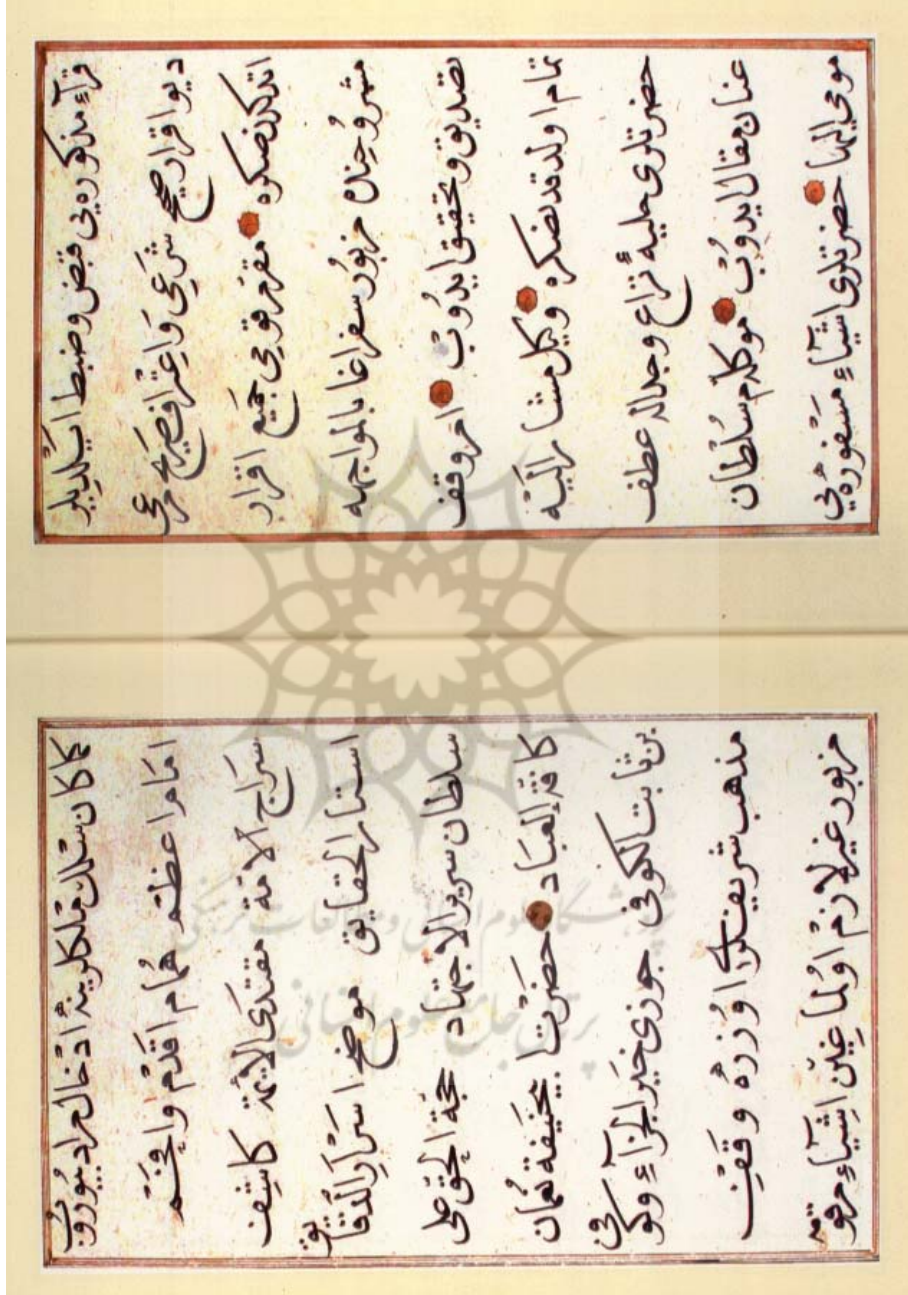 قرآء مذكوره يى قبض وضبط ايلديلر
ديو اقرار صحيح شرعى واعتراف صريح مرعى
اتدكدنصكره مقر مرقومى جميع اقرار
مشروحنده مزبور سفر اغا بالمواجهه
تصديق وتحقيق ايدوب امر وقف
تمام اولدقدنصكره وكيل مشار اليه
حضرتلرى حليهٔ نزاع وجداله عطف
عنان مقال ايدوب موكلم سلطان
مومى اليها حضرتلرى اشيآء مسفوره يى
كما كان سلك ملكلرينه ادخال مراد بيوروب
امام اعظم همام اقدم وافخم
سراج الامة مقتدى الائمة كاشف
استار الحقايق موضح اسرار الدقايق
سلطان سرير الاجتهاد حجة الحق على
كافة العباد حضرت ابيحنيفة نعمان
بن ثابت الكوفى جوزى خير الجزآء وكوفى
مذهب شريفلرى اوزره وقف
مزبور غير لازم اولماغين اشيآء مرقومه
پژوهشگاه علوم انسانی و مطالعات فرهنگی
پرتال جامع علوم انسانی